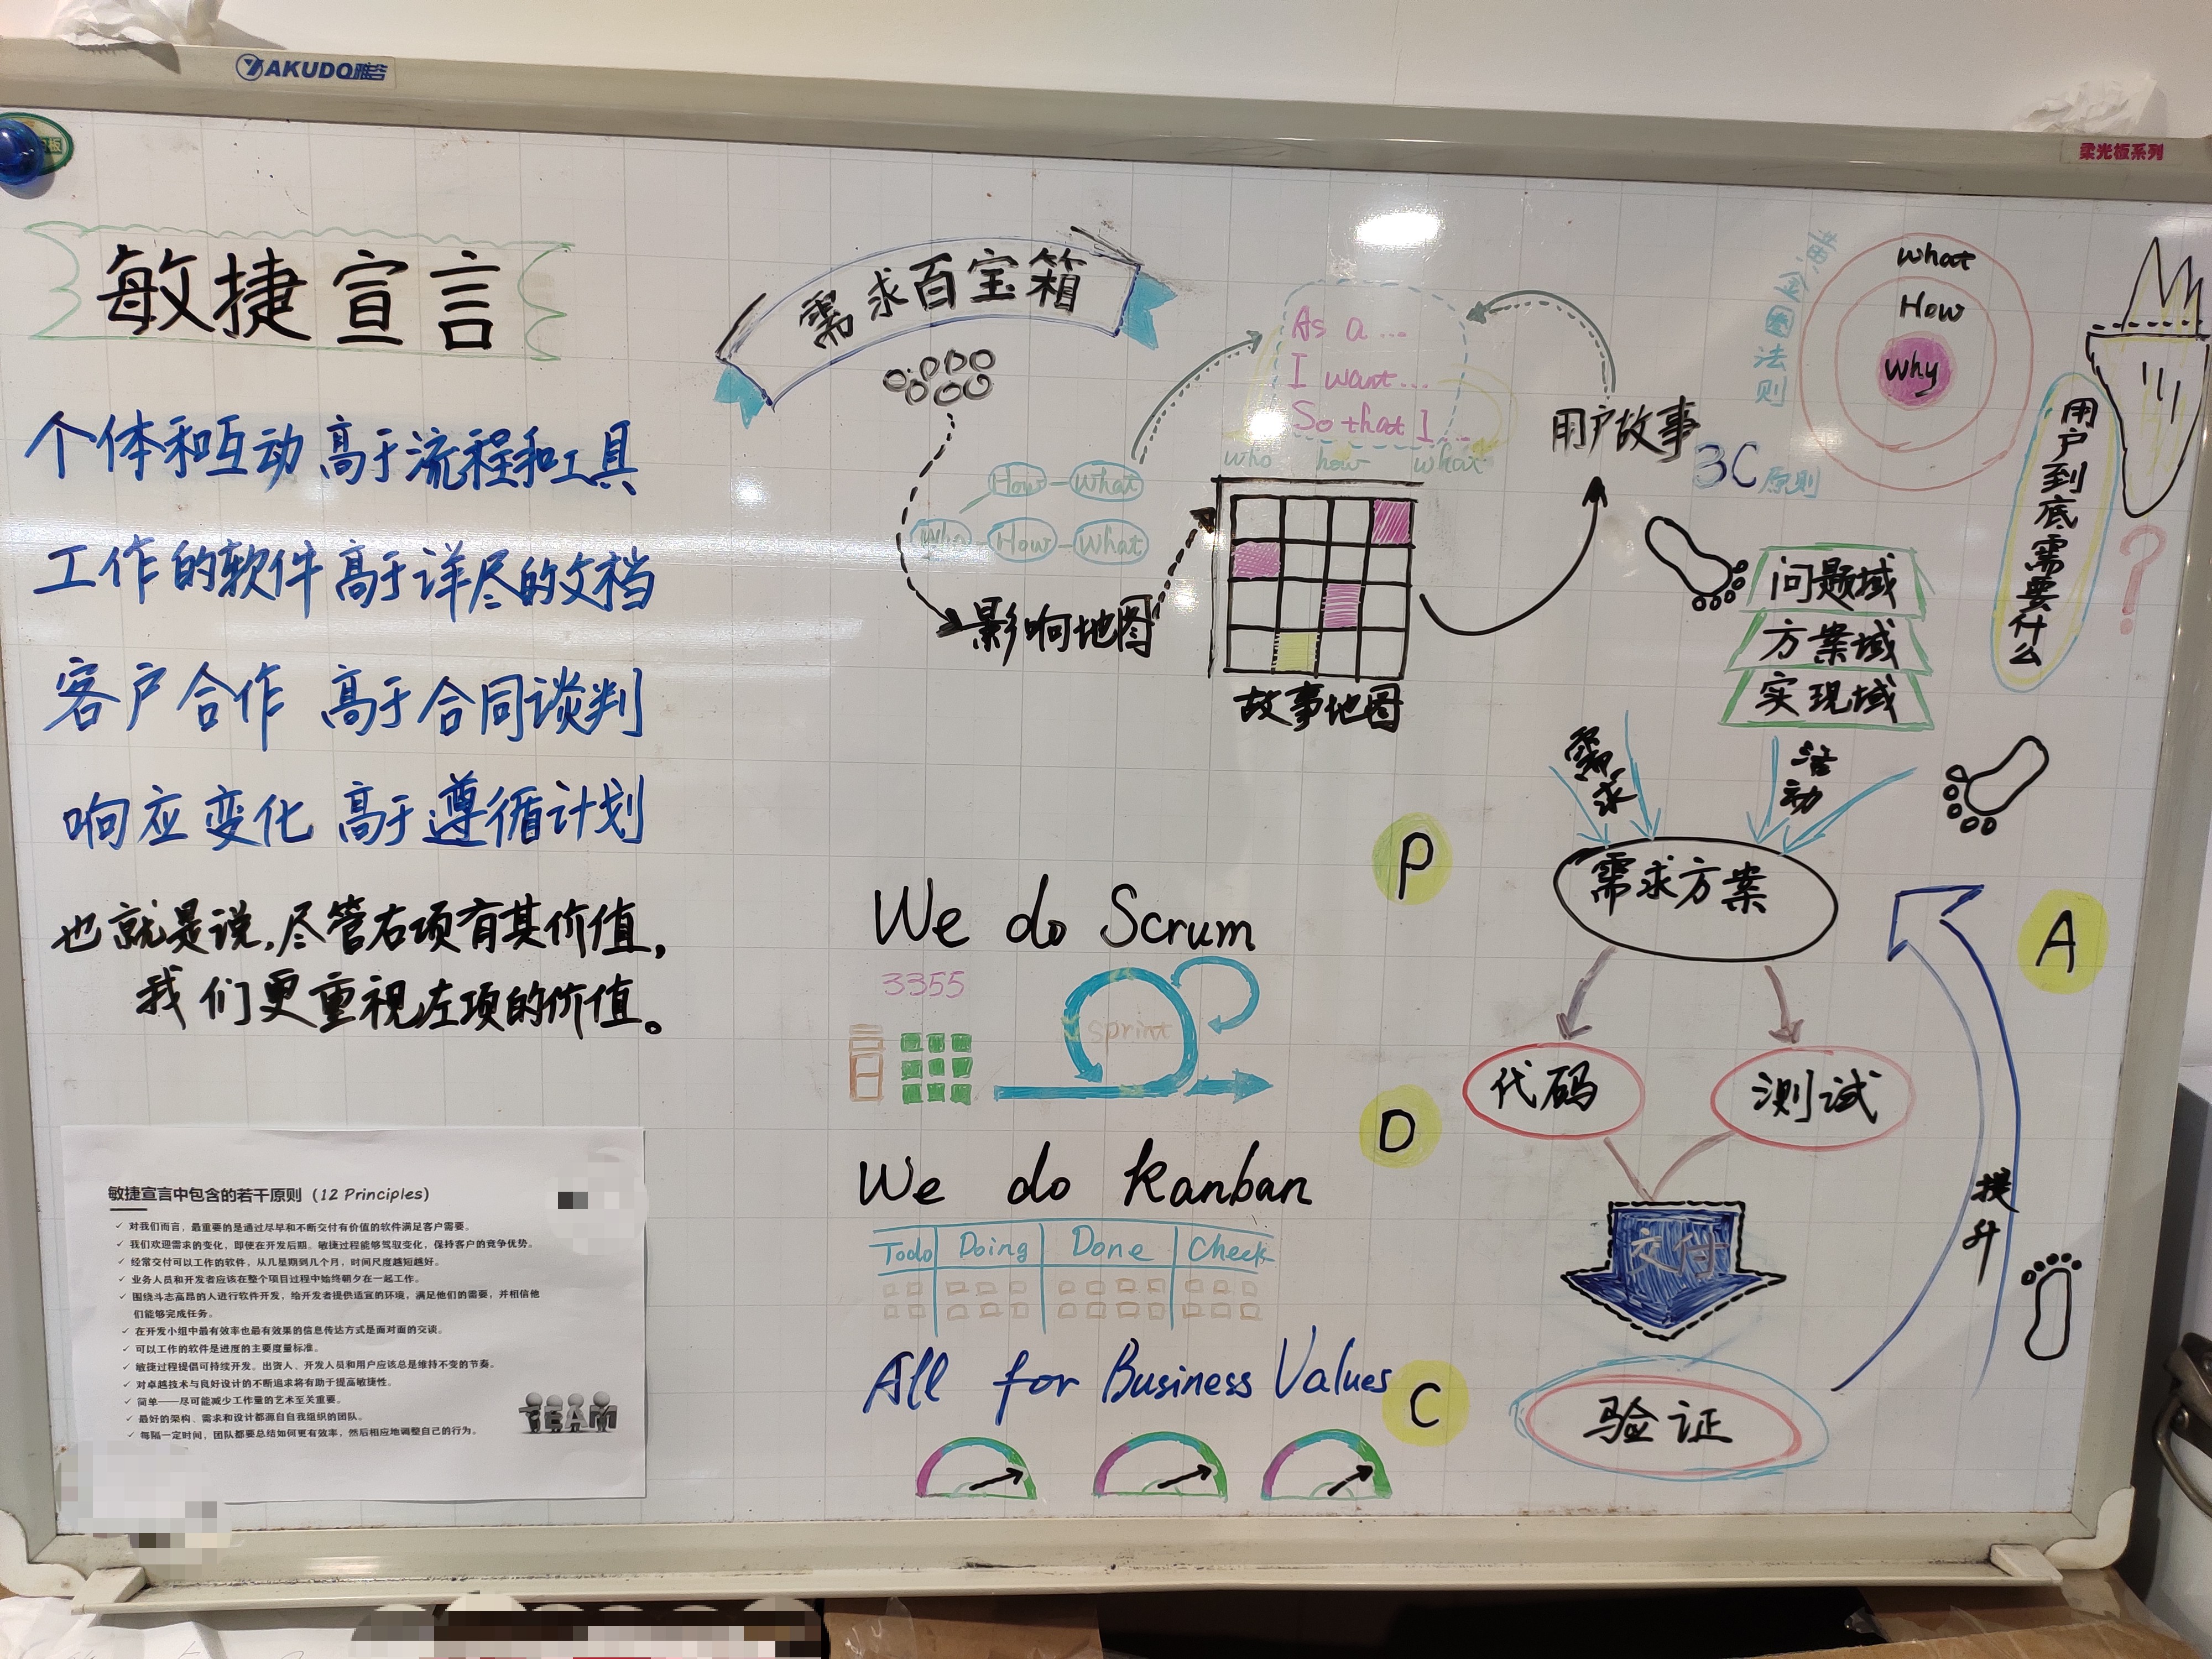 YAKUDO雅谷
柔光板系列
敏捷宣言
个体和互动 高于流程和工具
工作的软件 高于详尽的文档
客户合作 高于合同谈判
响应变化 高于遵循计划
也就是说,尽管右项有其价值,
我们更重视左项的价值。
敏捷宣言中包含的若干原则（12 Principles）
✓ 对我们而言，最重要的是通过尽早和不断交付有价值的软件满足客户需要。
✓ 我们欢迎需求的变化，即使在开发后期。敏捷过程能够驾驭变化，保持客户的竞争优势。
✓ 经常交付可以工作的软件，从几星期到几个月，时间尺度越短越好。
✓ 业务人员和开发者应该在整个项目过程中始终朝夕在一起工作。
✓ 围绕斗志高昂的人进行软件开发，给开发者提供适宜的环境，满足他们的需要，并相信他
们能够完成任务。
✓ 在开发小组中最有效率也最有效果的信息传达方式是面对面的交谈。
✓ 可以工作的软件是进度的主要度量标准。
✓ 敏捷过程提倡可持续开发。出资人、开发人员和用户应该总是维持不变的节奏。
✓ 对卓越技术与良好设计的不断追求将有助于提高敏捷性。
✓ 简单——尽可能减少工作量的艺术至关重要。
✓ 最好的架构、需求和设计都源自自我组织的团队。
✓ 每隔一定时间，团队都要总结如何更有效率，然后相应地调整自己的行为。
TEAM
需求百宝箱
How What
Who How What
影响地图
As a ...
I want...
So that I...
who how what
故事地图
用户故事
3C原则
黄金圈法则
what
How
Why
用户到底需要什么
?
问题域
方案域
实现域
需求
活动
需求方案
代码
测试
交付
验证
提升
P
D
C
A
We do Scrum
3355
sprint
We do kanban
Todo Doing Done Check
All for Business Values